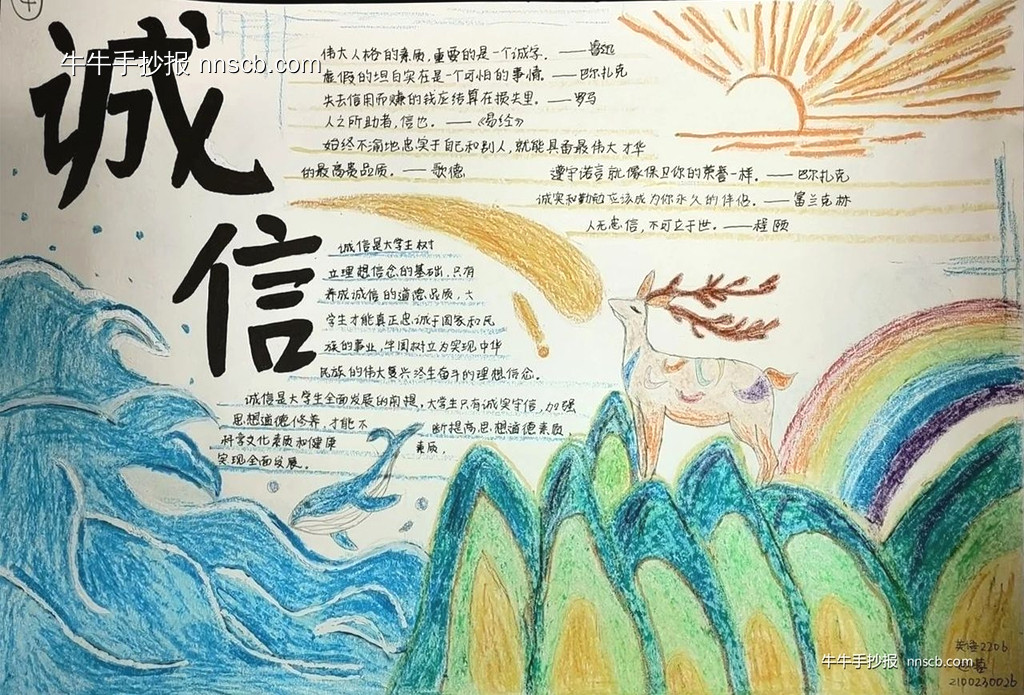 牛牛手抄报 nnscb.com
诚信
伟大人格的素质，重要的是一个诚字。——鲁迅
虚假的坦白实在是一个可怕的事情。——巴尔扎克
失去信用而赚的钱应结算在损失里。——罗马
人之所助者，信也。——《易经》
始终不渝地忠实于自己和别人，就能具备最伟大才华
的最高贵品质。——歌德
遵守诺言就像保卫你的荣誉一样。——巴尔扎克
诚实和勤勉应该成为你永久的伴侣。——富兰克林
人无忠信，不可立于世。——程颐
诚信是大学生树
立理想信念的基础，只有
养成诚信的道德品质，大
学生才能真正忠诚于国家和民
族的事业，牢固树立为实现中华
民族的伟大复兴终生奋斗的理想信念。
诚信是大学生全面发展的前提，大学生只有诚实守信，加强
思想道德修养，才能不断提高思想道德素质
科学文化素质和健康素质，
实现全面发展。
英语2206
牛牛手抄报 nnscb.com
2100230026